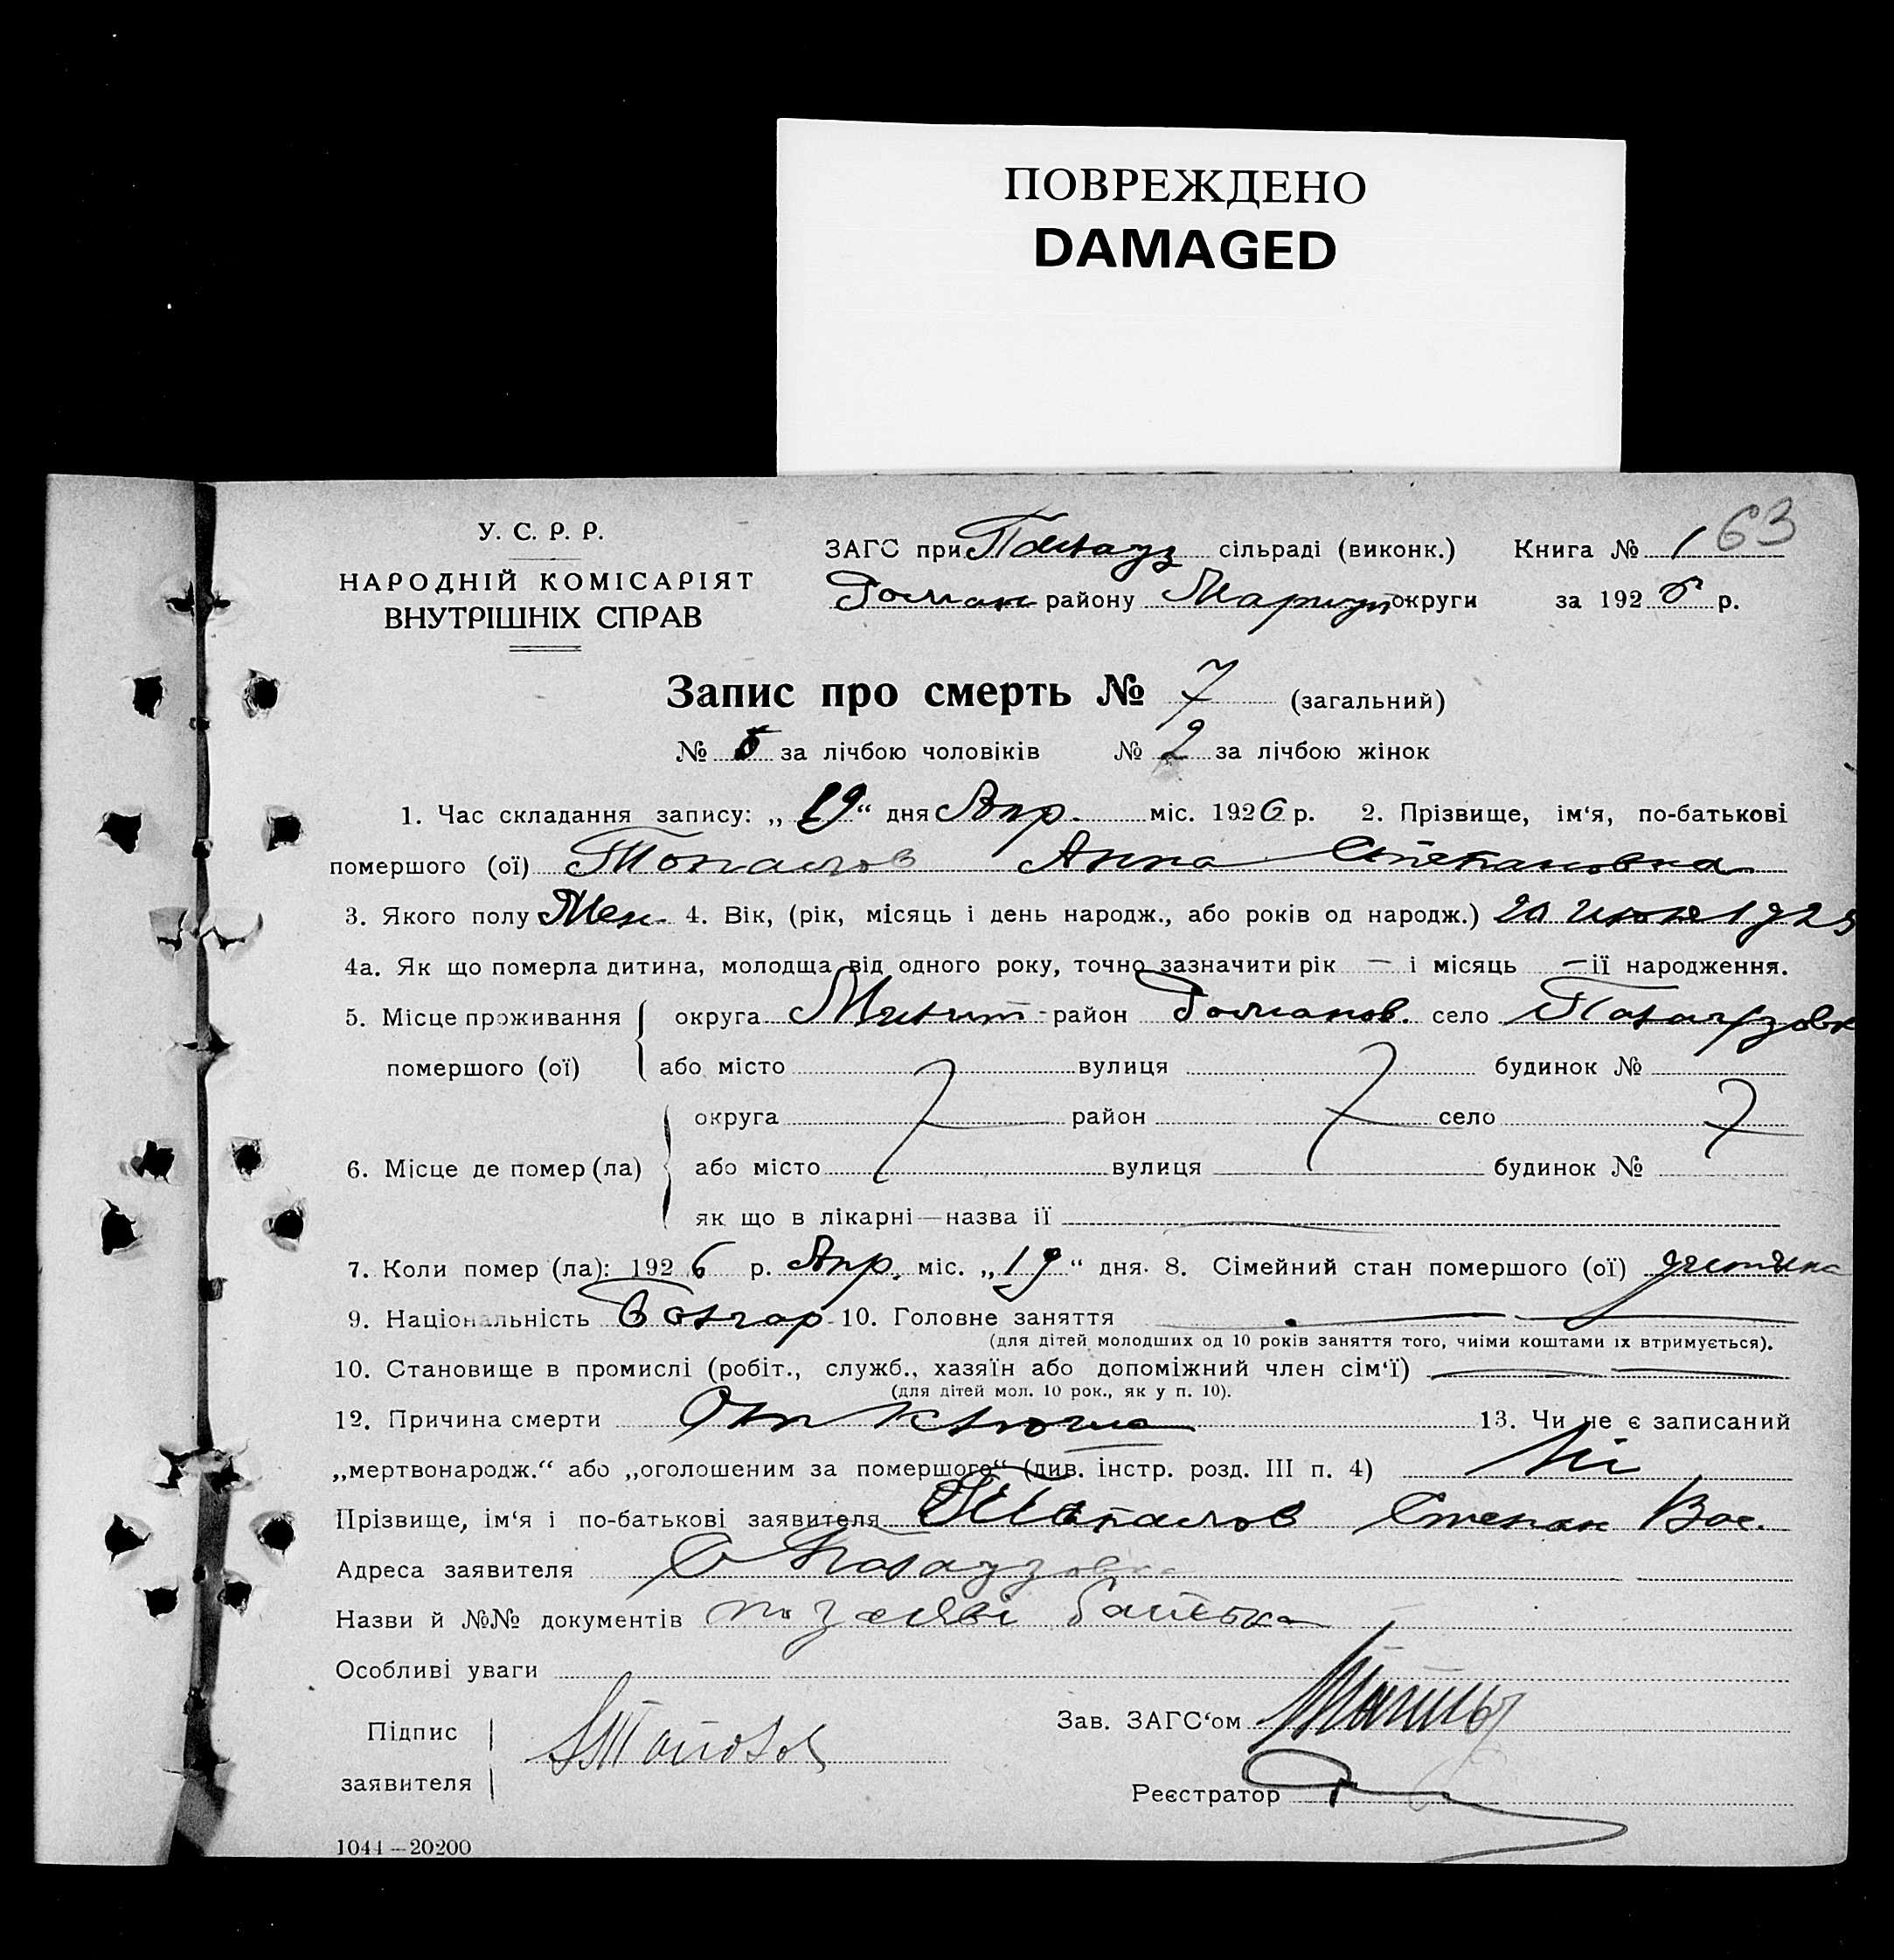 ПОВРЕЖДЕНО
DAMAGED
У. С. Р. Р.
НАРОДНІЙ КОМІСАРІЯТ
ВНУТРІШНІХ СПРАВ
ЗАГС при сільраді (виконк.) Книга № 1 63
району Маріуп округи за 1926 р.
Запис про смерть № 7 (загальний)
№ 5 за лічбою чоловіків № 2 за лічбою жінок
1. Час складання запису: „19“ дня Апр. міс. 1926 р. 2. Прізвище, ім‘я, по-батькові
помершого (ої) Топалов Анна Степановна
3. Якого полу Жен 4. Вік, (рік, місяць і день народж., або років од народж.) 20 июня 1925
4а. Як що померла дитина, молодща від одного року, точно зазначити рік — і місяць — її народження.
5. Місце проживання округа район село
помершого (ої) або місто вулиця будинок №
округа район село
6. Місце де помер (ла) або місто вулиця будинок №
як що в лікарні—назва її
7. Коли помер (ла): 1926 р. Апр. міс. „19“ дня. 8. Сімейний стан помершого (ої) дитина
9. Національність Болгар 10. Головне заняття
(для дітей молодших од 10 років заняття того, чиїми коштами їх втримується).
10. Становище в промислі (робіт., служб., хазяїн або допоміжний член сім‘ї)
(для дітей мол. 10 рок., як у п. 10).
12. Причина смерти От 13. Чи не є записаний
„мертвонародж.“ або „оголошеним за помершого“ (див. інстр. розд. III п. 4) Ні
Прізвище, ім‘я і по-батькові заявителя Топалов Степан Вас.
Адреса заявителя С
Назви й №№ документів по заяві батька
Особливі уваги
Підпис Зав. ЗАГС‘ом
заявителя
Реєстратор
1044—20200